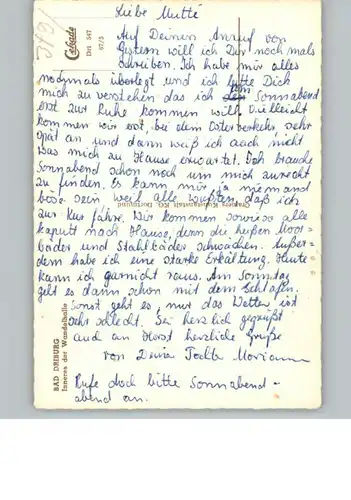 Liebe Mutti
Auf Deinen Anruf von
Gestern will ich Dir noch mals
schreiben. Ich habe mir alles
nochmals überlegt und ich bitte Dich
mich zu verstehen das ich am Sonnabend
erst zur Ruhe kommen will. Vielleicht
kommen wir erst, bei dem Osterverkehr, sehr
spät an und dann weiß ich auch nicht
was mich zu Hause erwartet. Ich brauche
Sonnabend schon noch um mich zurecht
zu finden. Es kann mir ja niemand
böse sein weil alle wußten, daß ich
zur Kur fahre. Wir kommen sowieso alle
kaputt nach Hause, denn die heißen Moor=
bäder und Stahlbäder schwächen. Außer=
dem habe ich eine starke Erkältung. Heute
kann ich garnicht raus. Am Sonntag
geht es dann schon mit dem Schlafen.
Sonst geht es, nur das Wetter ist
sehr schlecht. Sei herzlich gegrüßt
auch an Horst herzliche Grüße
von Deine Tochter
Rufe doch bitte Sonnabend-
abend an.
Cekade
Dri 547
67/3
BAD DRIBURG
Inneres der Wandelhalle
Cramers Kunstanstalt KG, Dortmund